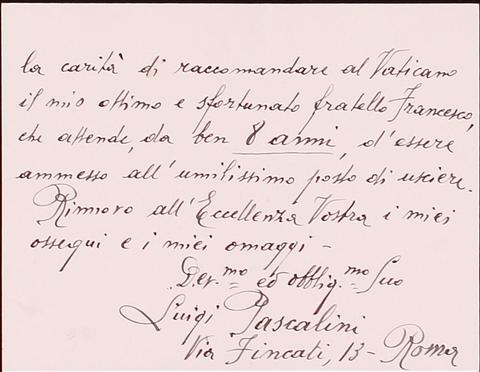 la carità di raccomandare al Vaticano
il mio ottimo e sfortunato fratello Francesco,
che attende, da ben 8 anni, d'essere
ammesso all'umilissimo posto di usciere.
Rinnovo all'Eccellenza Vostra i miei
ossequi e i miei omaggi -
Dev.mo ed obblig.mo Suo
Luigi Pascalini
Via Fincati, 13 - Roma